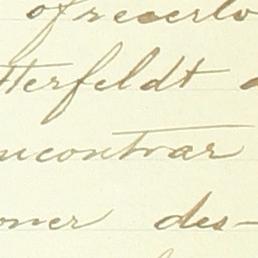 ofrecerlo
tterfeldt
ncontrar
oner des-